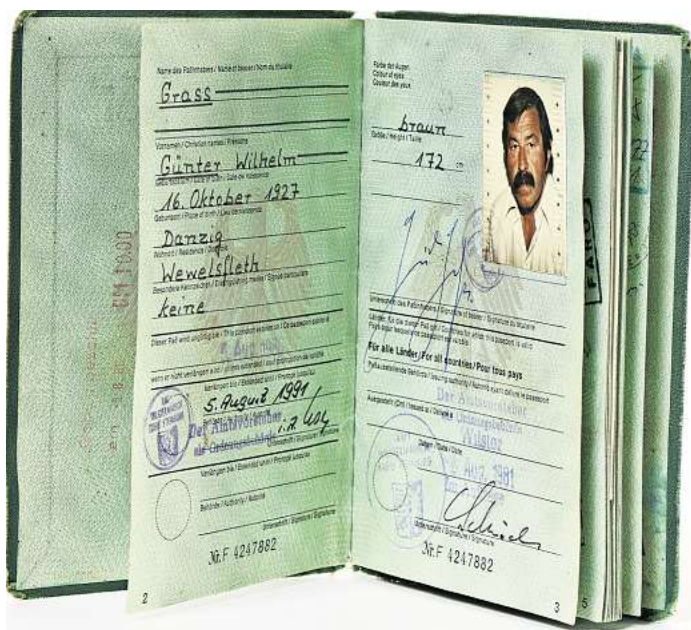 Name des Paßinhabers / Name of bearer / Nom du titulaire
Grass
Vornamen / Christian names / Prénoms
Günter Wilhelm
Geburtsdatum / Date of birth / Date de naissance
16. Oktober 1927
Geburtsort / Place of birth / Lieu de naissance
Danzig
Wohnort / Residence / Domicile
Wewelsfleth
Besondere Kennzeichen / Distinguishing marks / Signes particuliers
keine
Dieser Paß wird ungültig am / This passport expires on / Ce passeport expire le
wenn er nicht verlängert wird / unless extended / sauf prorogation de validité
Verlängert bis / Extended until / Prorogé jusqu'au
5. August 1991
Behörde / Authority / Autorité
Der Amtsvorsteher
als Ordnungsbehörde
Unterschrift / Signature / Signature
Verlängert bis / Extended until / Prorogé jusqu'au
Behörde / Authority / Autorité
Unterschrift / Signature / Signature
Nr. F 4247882
2
Farbe der Augen
Colour of eyes
Couleur des yeux
braun
Größe / Height / Taille
172 cm
Unterschrift des Paßinhabers / Signature of bearer / Signature du titulaire
Länder, für die dieser Paß gilt / Countries for which this passport is valid
Pays pour lesquels ce passeport est valable
Für alle Länder / For all countries / Pour tous pays
Paßausstellende Behörde / Issuing authority / Autorité ayant délivré le passeport
Der Amtsvorsteher
als Ordnungsbehörde
Ausgestellt (Ort) / Issued at / Délivré à
Wilster
Datum / Date / Date
AUG. 1981
Unterschrift / Signature / Signature
Nr. F 4247882
3
5
FARO